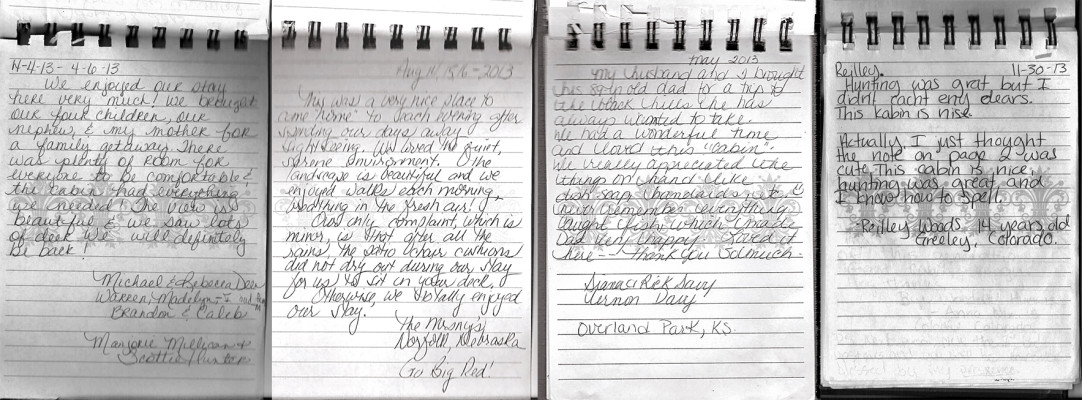 4-4-13 - 4-6-13
We enjoyed our stay
here very much! We brought
our four children, our
nephew, & my mother for
a family getaway. There
was plenty of room for
everyone to be comfortable &
the cabin had everything
we needed! The view is
beautiful & we saw lots
of deer. We will definitely
be back!
Michael & Rebecca
Warren, Madelyn
Brandon & Caleb
Marjorie Millican &
Scottie Hunter
Aug 14, 15, 16 - 2013
This was a very nice place to
come "home" to each evening after
spending our days away
sight seeing. We loved the quiet,
serene environment. The
landscape is beautiful and we
enjoyed walks each morning,
breathing in the fresh air!
Our only complaint, which is
minor, is that after all the
rains, the patio chair cushions
did not dry out during our stay
for us to sit on your deck.
Otherwise, we totally enjoyed
our stay.
The
Norfolk, Nebraska
Go Big Red!
May 2013
My husband and I brought
his old dad for a trip to
the Black Hills he has
always wanted to take.
We had a wonderful time
and loved this "cabin".
We really appreciated the
things on hand like
dish soap,
never remember everything
Caught fish, which made
Dad very happy Loved it
here -- Thank you so much.
Rick
Vernon
Overland Park, KS.
Reilley. 11-30-13
Hunting was grat, but I
didnt cacht eny dears.
This kabin is nise.
Actually, I just thought
the note on page 2 was
cute. This cabin is nice,
hunting was great, and
I know how to spell.
-Reilley Woods 14 years old
Greeley, Colorado.